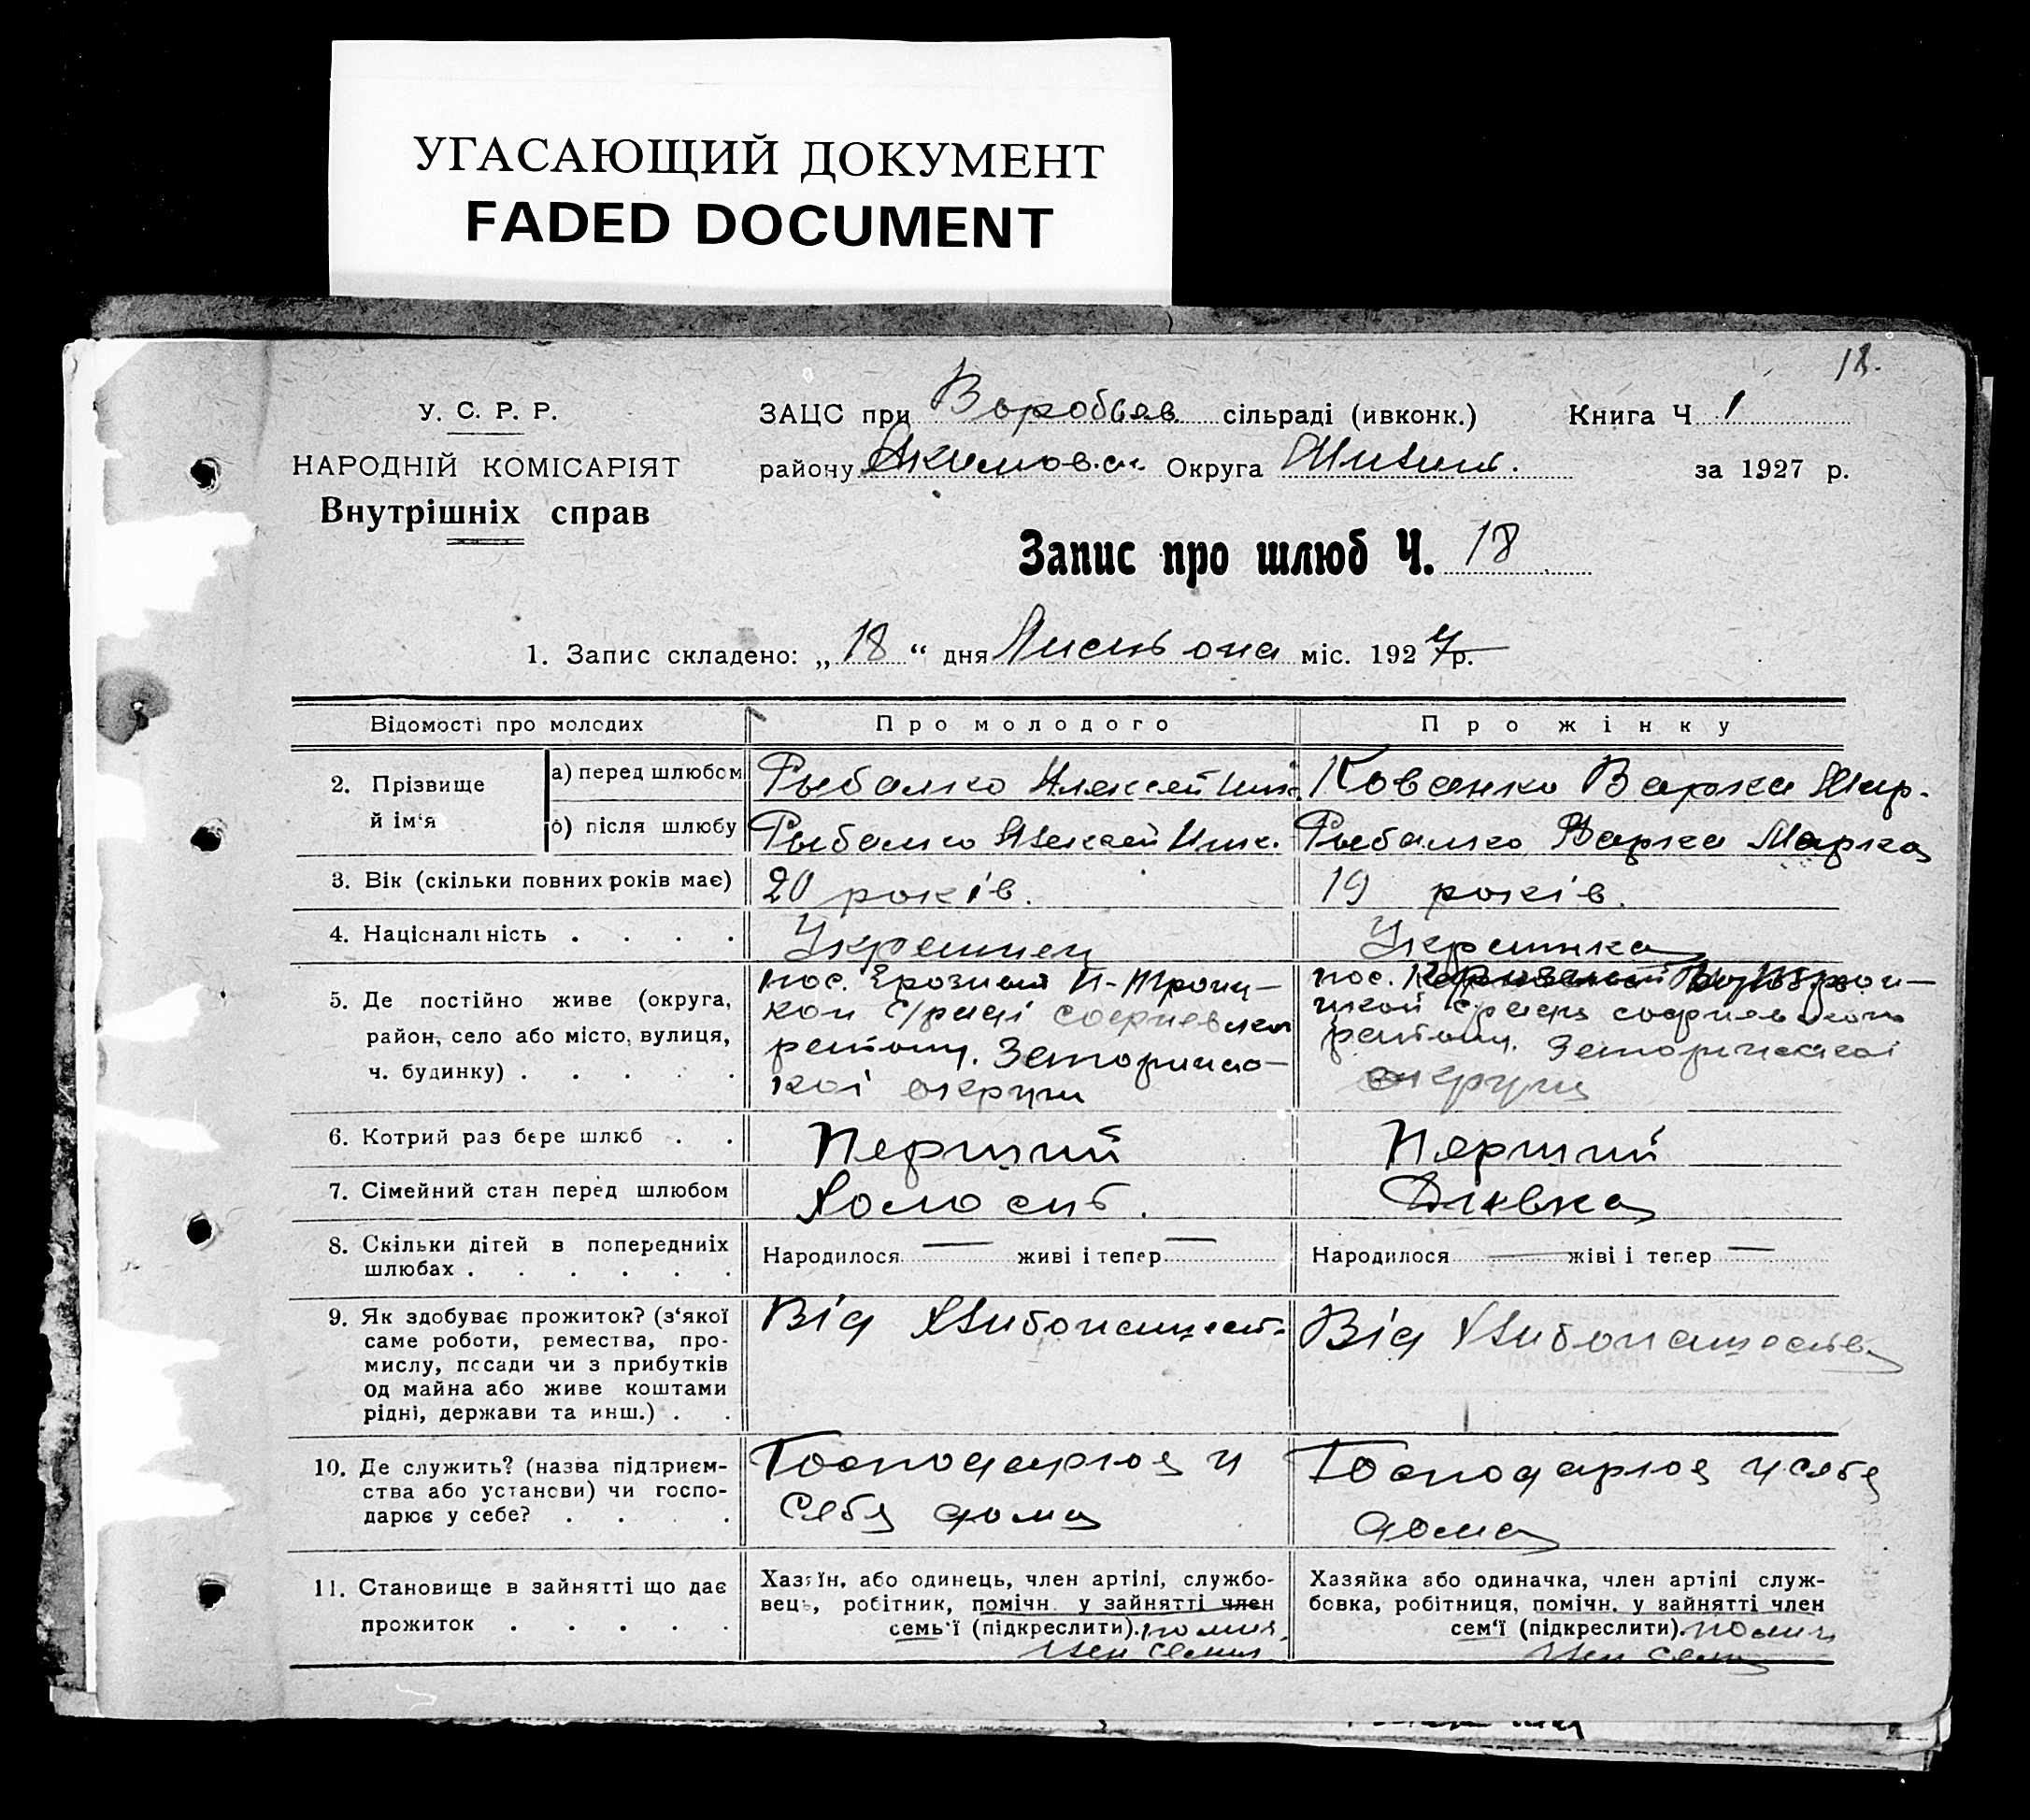 УГАСАЮЩИЙ ДОКУМЕНТ
FADED DOCUMENT
18.
У. С. Р. Р.
НАРОДНІЙ КОМІСАРІЯТ
Внутрішніх справ
ЗАЦС при Воробьев сільраді (ивконк.) Книга Ч 1
району Акимовск. Округа за 1927 р.
Запис про шлюб Ч. 18
1. Запис складено: „ 18 “ дня міс. 1927 р.
Відомості про молодих Про молодого Про жінку
2. Прізвище й ім‘я
а) перед шлюбом Рыбалко Алексей Ник. Кованко Варка Мар.
б) після шлюбу Рыбалко Алексей Ник. Рыбалко Варка Марка
3. Вік (скільки повних років має) 20 років. 19 років.
4. Національність . . . . Украинец Украинка
5. Де постійно живе (округа,
район, село або місто, вулиця,
ч. будинку) . . . . .
пос. И-Троиц-
кой с/раді софиевской
району. Запорижс-
кої округи
пос.
цкой с/ради софиевской
району. Запорижскої
округи
6. Котрий раз бере шлюб . . Перший Перший
7. Сімейний стан перед шлюбом Холост. Дивка
8. Скільки дітей в попередниіх
шлюбах . . . . . .
Народилося — живі і тепер — Народилося — жіві і тепер —
9. Як здобуває прожиток? (з‘якої
саме роботи, ремества, про-
мислу, посади чи з прибутків
од майна або живе коштами
рідні, держави та инш.) . .
Від Хлибопашест. Від Хлибопашества
10. Де служить? (назва підприєм-
ства або установи) чи госпо-
дарює у себе? . . . .
Господарюя у
себя дома
Господарюя у себя
дома
11. Становище в зайнятті що дає
прожиток . . . . .
Хазяїн, або одинець, член артілі, службо-
вець, робітник, помічн. у зайнятті член
семь‘ї (підкреслити). помич.
член семьи
Хазяйка або одиначка, член артілі служ-
бовка, робітниця, помічн. у зайнятті член
сем‘ї (підкреслити). помич
член семьи